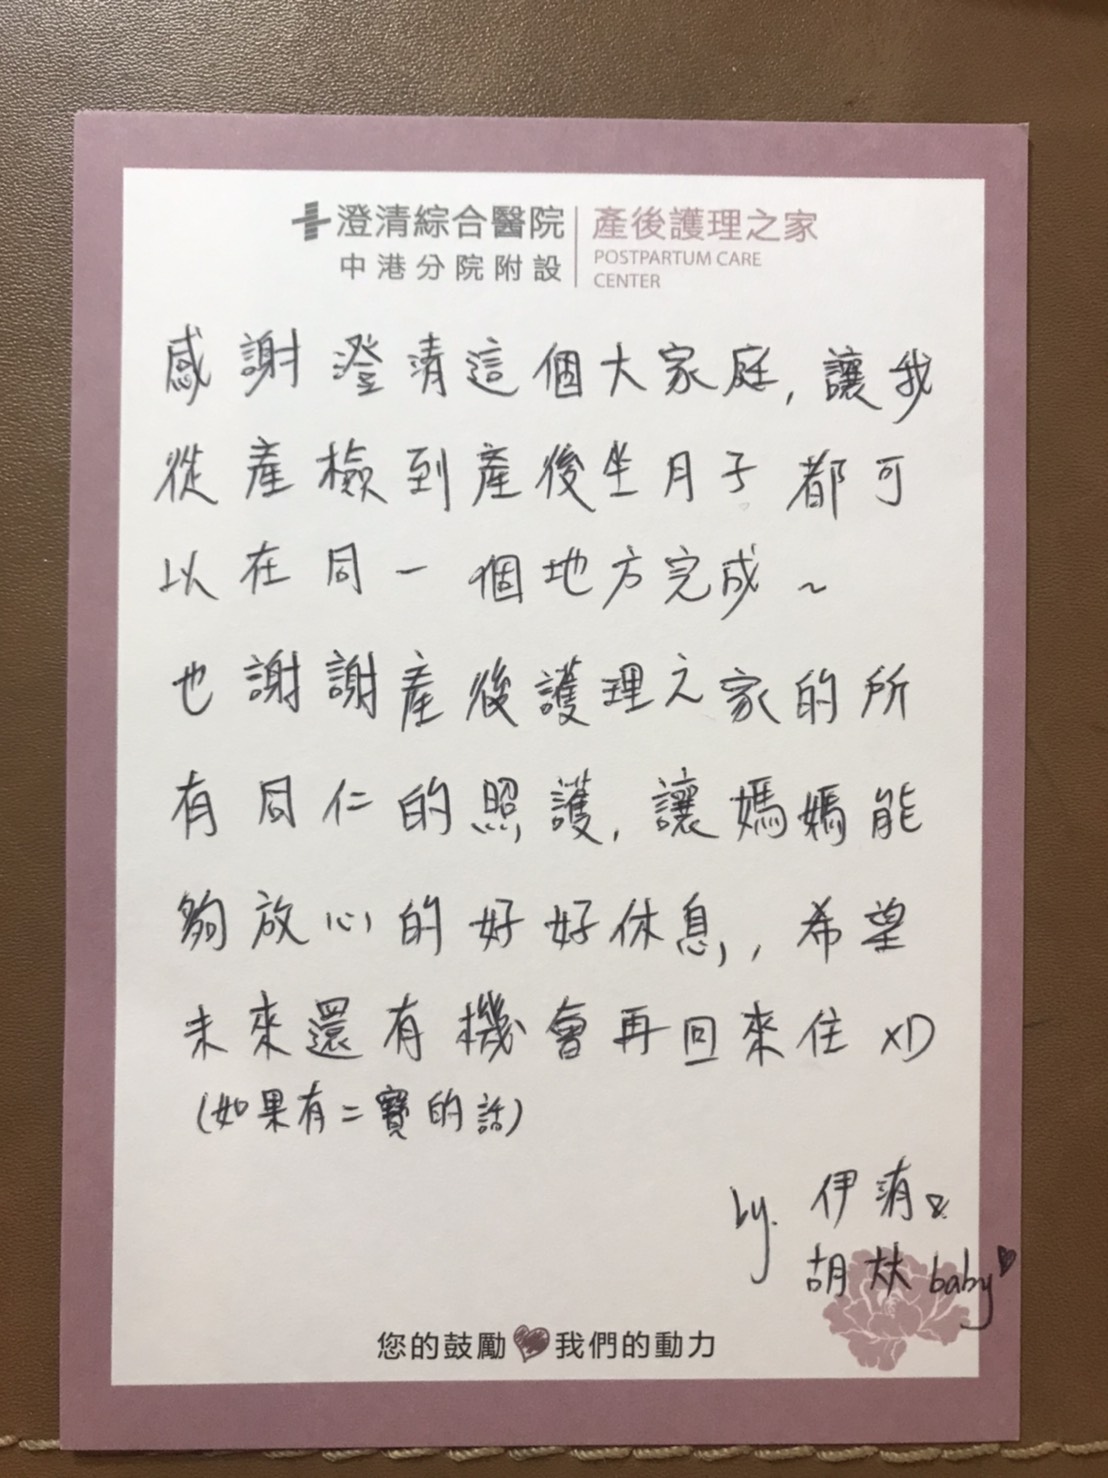 澄清綜合醫院
中港分院附設
產後護理之家
POSTPARTUM CARE
CENTER
感謝澄清這個大家庭,讓我
從產檢到產後坐月子都可
以在同一個地方完成~
也謝謝產後護理之家的所
有同仁的照護,讓媽媽能
夠放心的好好休息,,希望
未來還有機會再回來住XD
(如果有二寶的話)
by. 伊
胡 baby
您的鼓勵 我們的動力